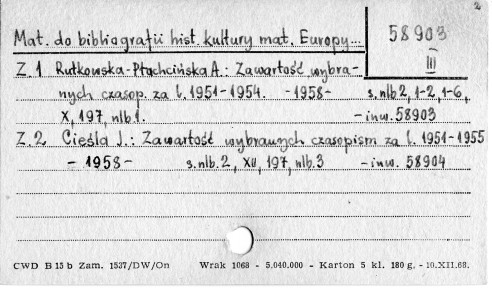 2
Mat. do bibliografii hist. kultury mat. Europy...
58903
III
Z. 1 Rutkowska-Płachcińska A.: Zawartość wybra-
nych czasop. za l. 1951-1954. -1958- s. nlb 2, 1-2, 1-6,
X, 197, nlb 1. - inw. 58903
Z. 2 Cieśla J.: Zawartość wybranych czasopism za l. 1951-1955
- 1958 - s. nlb. 2, XII, 197, nlb. 3 - inw. 58904
CWD B 15 b Zam. 1537/DW/On Wrak 1068 - 5.040.000 - Karton 5 kl. 180 g. - 10.XII.68.